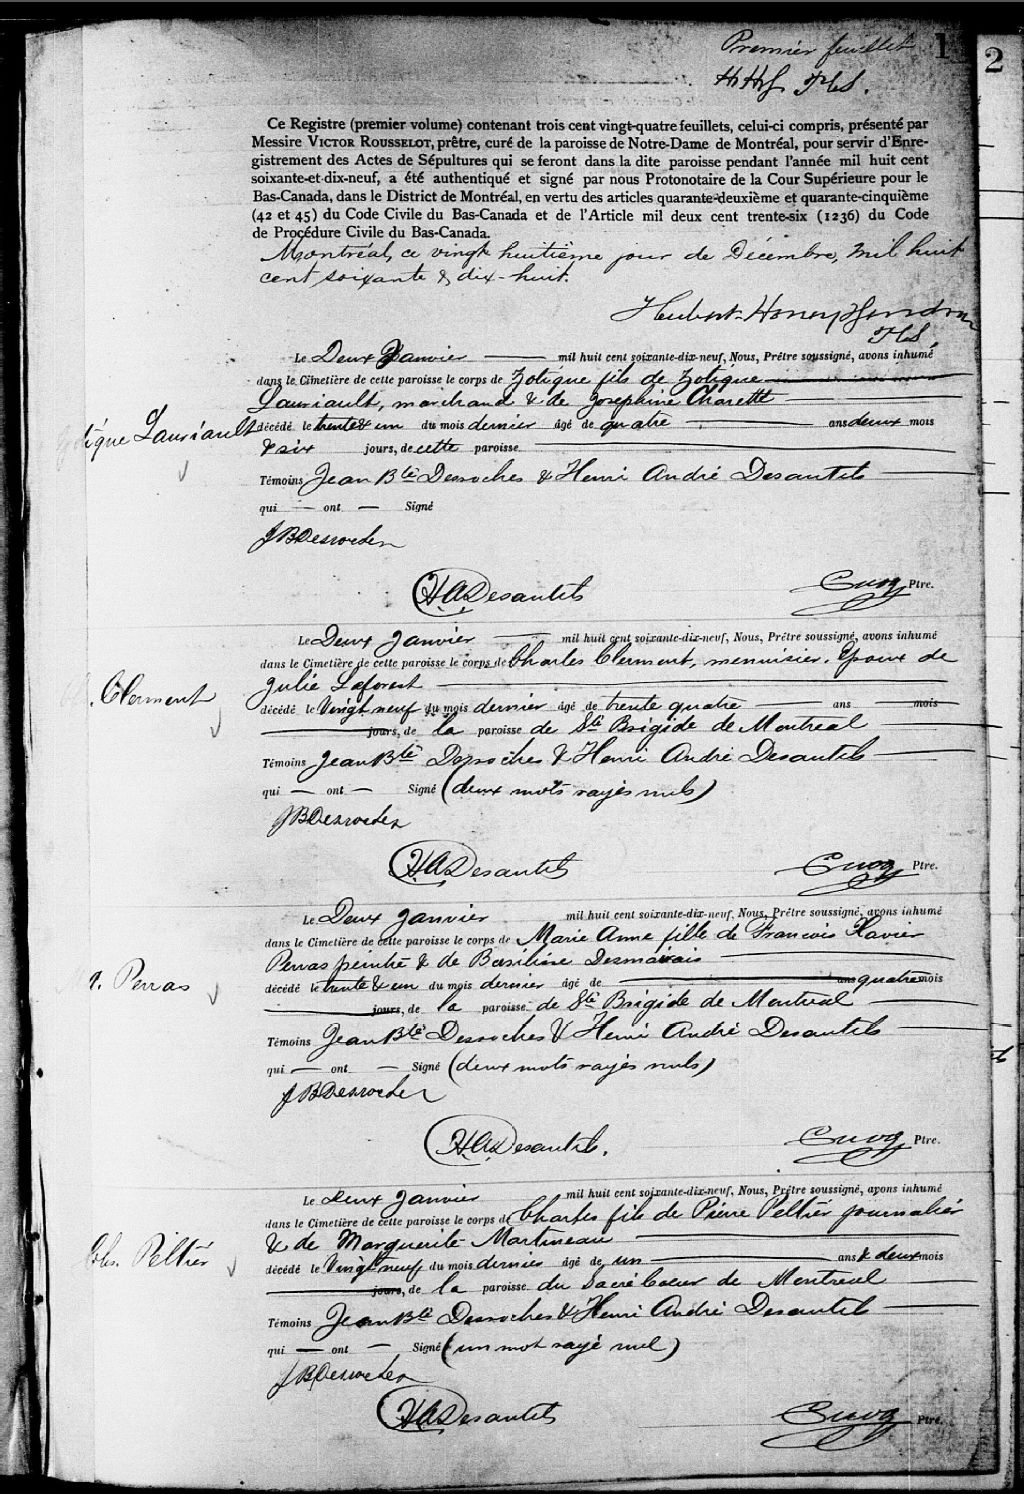 Premier feuillet 1
2
HHH PCS.
Ce Registre (premier volume) contenant trois cent vingt-quatre feuillets, celui-ci compris, présenté par
Messire VICTOR ROUSSELOT, prêtre, curé de la paroisse de Notre-Dame de Montréal, pour servir d'Enre-
gistrement des Actes de Sépultures qui se feront dans la dite paroisse pendant l'année mil huit cent
soixante-et-dix-neuf, a été authentiqué et signé par nous Protonotaire de la Cour Supérieure pour le
Bas-Canada, dans le District de Montréal, en vertu des articles quarante-deuxième et quarante-cinquième
(42 et 45) du Code Civile du Bas-Canada et de l'Article mil deux cent trente-six (1236) du Code
de Procédure Civile du Bas-Canada.
Montréal, ce vingt huitième jour de Décembre, mil huit
cent soixante & dix-huit.
Hubert Honey
Le Deux Janvier mil huit cent soixante-dix-neuf, Nous, Prêtre soussigné, avons inhumé
dans le Cimetière de cette paroisse le corps de Zotique fils de Zotique
Lauriault, marchand & de Josephine Charette
Lauriault décédé le trente & un du mois dernier âgé de quatre ans deux mois
& six jours, de cette paroisse
Témoins Jean Bte Desroches & Henri André Desautels
qui — ont — Signé
JBDesroches
HADesautels Cuoq Ptre.
Le Deux Janvier mil huit cent soixante-dix-neuf, Nous, Prêtre soussigné, avons inhumé
dans le Cimetière de cette paroisse le corps de Charles Clermont, menuisier, Epoux de
Clermont Julie Laforest
décédé le Vingt neuf du mois dernier âgé de trente quatre ans mois
jours, de la paroisse de Ste Brigide de Montreal
Témoins Jean Bte Desroches & Henri André Desautels
qui — ont — Signé (deux mots rayés nuls)
JBDesroches
HADesautels Cuoq Ptre.
Le Deux Janvier mil huit cent soixante-dix-neuf, Nous, Prêtre soussigné, avons inhumé
dans le Cimetière de cette paroisse le corps de Marie Anne fille de Francois Xavier
Perras peintre & de Basilisse Desmarais
Perras décédé le trente & un du mois dernier âgé de ans quatre mois
jours, de la paroisse de Ste Brigide de Montreal
Témoins Jean Bte Desroches & Henri André Desautels
qui — ont — Signé (deux mots rayés nuls)
JBDesroches
HADesautels. Cuoq Ptre.
Le Deux Janvier mil huit cent soixante-dix-neuf, Nous, Prêtre soussigné, avons inhumé
dans le Cimetière de cette paroisse le corps de Charles fils de Pierre Peltier journalier
Chs. Peltier & de Marguerite Martineau
décédé le Vingt neuf du mois dernier âgé de un ans & deux mois
jours, de la paroisse du Sacré Coeur de Montreal
Témoins Jean Bte Desroches & Henri André Desautels
qui — ont — Signé (un mot rayé nul)
JBDesroches
HADesautels Cuoq Ptre.